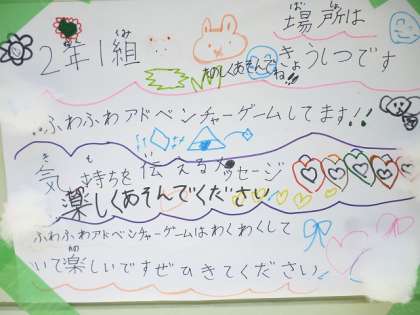 ２年１組
くみ
場所は
ばしょ
きょうしつです
たのしくあそんでね!!
ふわふわアドベンチャーゲームしてます!!
気持ちを伝えるメッセージ
き も
楽しくあそんでください
ふわふわアドベンチャーゲームはわくわくして
いて楽しいですぜひきてください